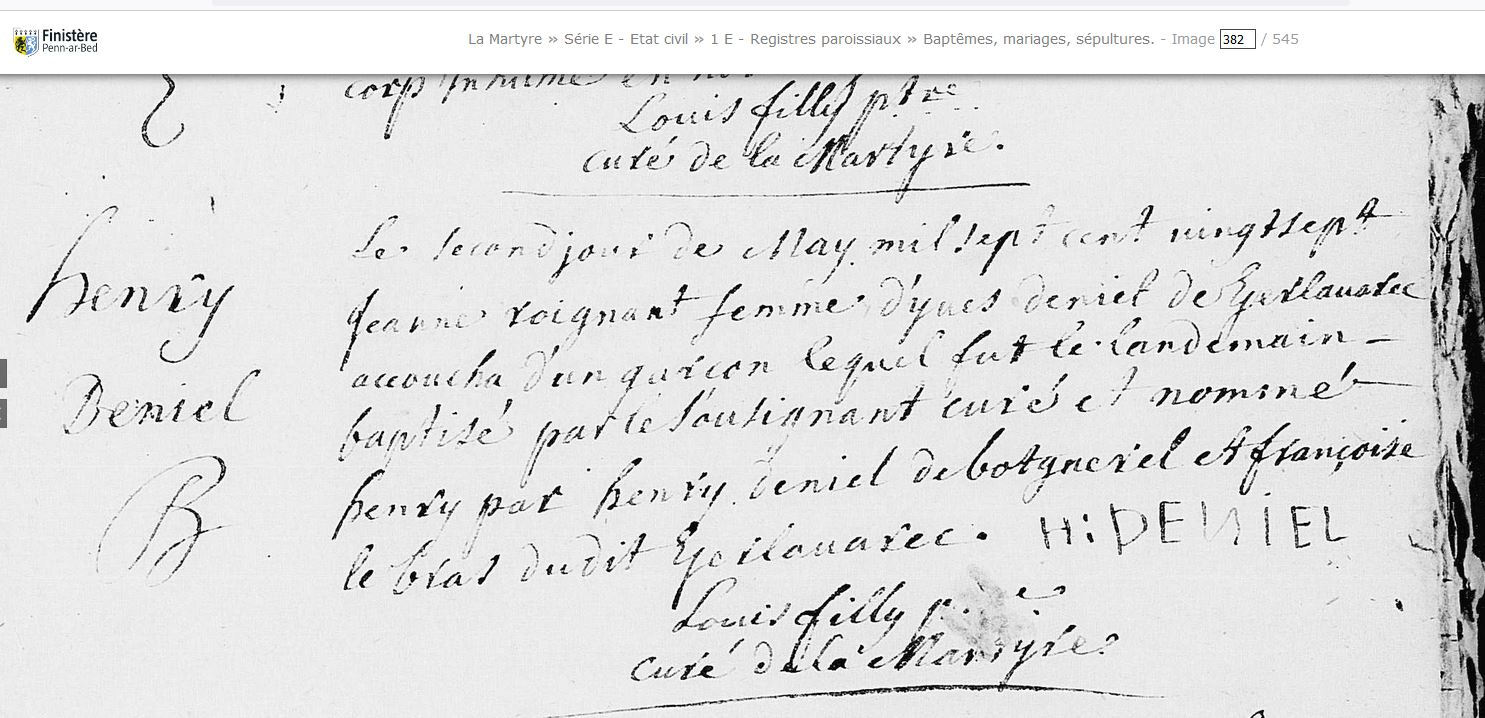 Finistère
Penn-ar-Bed
La Martyre » Série E - Etat civil » 1 E - Registres paroissiaux » Baptêmes, mariages, sépultures. - Image 382 / 545
corp Inhumé en
Louis filly ptre
curé de la Martyre.
henry
Deniel
B
Le second jour de May mil sept cent vingt sept
Jeanne roignant femme d'yues deniel de Kerlauarec
accoucha d'un garcon lequel fut le landemain -
baptisé par le sousignant curé et nommé
henry par henry deniel de botguerel et françoise
le bras du dit Kerlauarec. H: DENIEL
Louis filly
curé de la Martyre.